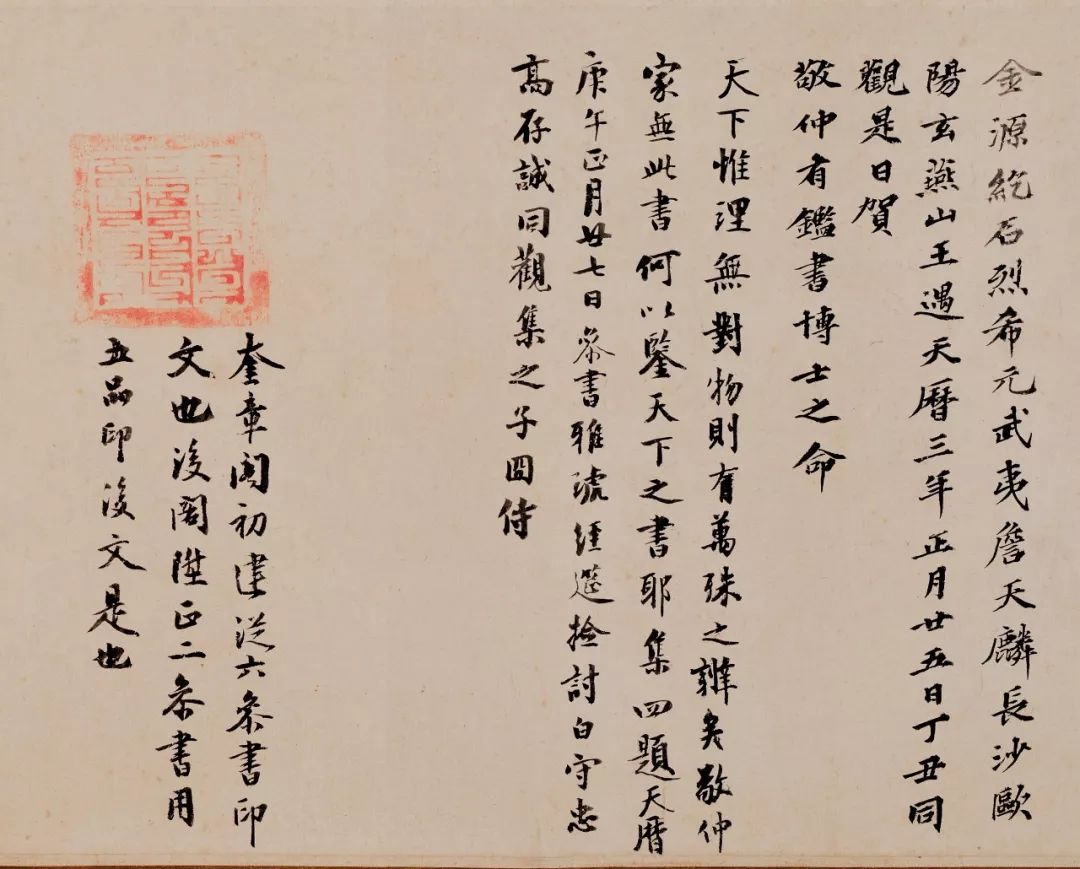 金源紇石烈希元武夷詹天麟長沙歐
陽玄燕山王遇天曆三年正月廿五日丁丑同
觀是日賀
敬仲有鑑書博士之命
天下惟理無對物則有萬殊之辯矣敬仲
家無此書何以鑒天下之書耶集四題天曆
庚午正月廿七日叅書雅琥經遊撿討白守忠
高存誠同觀集之子囦侍
奎章閣初建從六叅書印
文也後閣陞正二叅書用
五品印後文是也